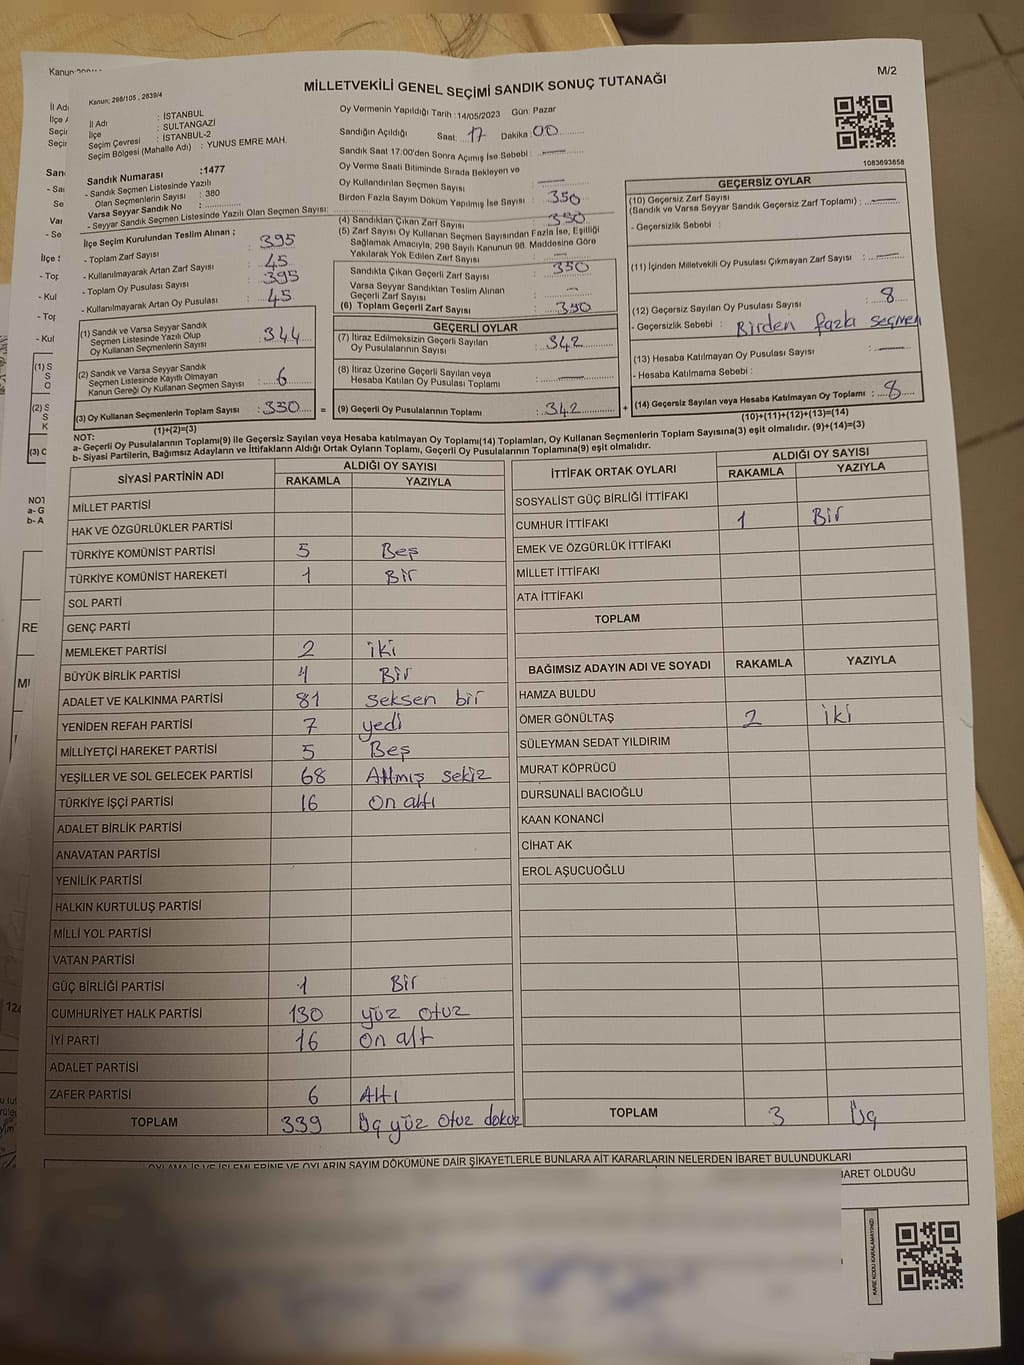 MİLLETVEKİLİ GENEL SEÇİMİ SANDIK SONUÇ TUTANAĞI
M/2
Kanun; 298/105 , 2839/4
İl Adı : İSTANBUL
İlçe : SULTANGAZİ
Seçim Çevresi : İSTANBUL-2
Seçim Bölgesi (Mahalle Adı) : YUNUS EMRE MAH.
Sandık Numarası :1477
- Sandık Seçmen Listesinde Yazılı
Olan Seçmenlerin Sayısı : 380
Varsa Seyyar Sandık No :
- Seyyar Sandık Seçmen Listesinde Yazılı Olan Seçmen Sayısı:
İlçe Seçim Kurulundan Teslim Alınan ;
- Toplam Zarf Sayısı : 395
- Kullanılmayarak Artan Zarf Sayısı : 45
- Toplam Oy Pusulası Sayısı : 395
- Kullanılmayarak Artan Oy Pusulası : 45
(1) Sandık ve Varsa Seyyar Sandık
Seçmen Listesinde Yazılı Olup
Oy Kullanan Seçmenlerin Sayısı : 344
(2) Sandık ve Varsa Seyyar Sandık
Seçmen Listesinde Kayıtlı Olmayan
Kanun Gereği Oy Kullanan Seçmen Sayısı : 6
(3) Oy Kullanan Seçmenlerin Toplam Sayısı : 350 =
(1)+(2)=(3)
Oy Vermenin Yapıldığı Tarih :14/05/2023 Gün: Pazar
Sandığın Açıldığı Saat: 17 Dakika: 00
Sandık Saat 17:00'den Sonra Açımış İse Sebebi :
Oy Verme Saati Bitiminde Sırada Bekleyen ve
Oy Kullandırılan Seçmen Sayısı
Birden Fazla Sayım Döküm Yapılmış İse Sayısı : 350
(4) Sandıktan Çıkan Zarf Sayısı : 350
(5) Zarf Sayısı Oy Kullanan Seçmen Sayısından Fazla İse, Eşitliği
Sağlamak Amacıyla, 298 Sayılı Kanunun 98. Maddesine Göre
Yakılarak Yok Edilen Zarf Sayısı :
Sandıkta Çıkan Geçerli Zarf Sayısı : 350
Varsa Seyyar Sandıktan Teslim Alınan
Geçerli Zarf Sayısı :
(6) Toplam Geçerli Zarf Sayısı : 350
GEÇERLİ OYLAR
(7) İtiraz Edilmeksizin Geçerli Sayılan
Oy Pusulalarının Sayısı : 342
(8) İtiraz Üzerine Geçerli Sayılan veya
Hesaba Katılan Oy Pusulası Toplamı :
(9) Geçerli Oy Pusulalarının Toplamı : 342 +
1083693858
GEÇERSİZ OYLAR
(10) Geçersiz Zarf Sayısı
(Sandık ve Varsa Seyyar Sandık Geçersiz Zarf Toplamı) :
- Geçersizlik Sebebi :
(11) İçinden Milletvekili Oy Pusulası Çıkmayan Zarf Sayısı :
(12) Geçersiz Sayılan Oy Pusulası Sayısı : 8
- Geçersizlik Sebebi : Birden fazla seçmen
(13) Hesaba Katılmayan Oy Pusulası Sayısı :
- Hesaba Katılmama Sebebi :
(14) Geçersiz Sayılan veya Hesaba Katılmayan Oy Toplamı : 8
(10)+(11)+(12)+(13)=(14)
NOT:
a- Geçerli Oy Pusulalarının Toplamı(9) ile Geçersiz Sayılan veya Hesaba katılmayan Oy Toplamı(14) Toplamları, Oy Kullanan Seçmenlerin Toplam Sayısına(3) eşit olmalıdır. (9)+(14)=(3)
b- Siyasi Partilerin, Bağımsız Adayların ve İttifakların Aldığı Oyların Toplamı, Geçerli Oy Pusulalarının Toplamına(9) eşit olmalıdır.
SİYASİ PARTİNİN ADI ALDIĞI OY SAYISI
RAKAMLA YAZIYLA
MİLLET PARTİSİ
HAK VE ÖZGÜRLÜKLER PARTİSİ
TÜRKİYE KOMÜNİST PARTİSİ 5 Beş
TÜRKİYE KOMÜNİST HAREKETİ 1 Bir
SOL PARTİ
GENÇ PARTİ
MEMLEKET PARTİSİ 2 iki
BÜYÜK BİRLİK PARTİSİ 1 Bir
ADALET VE KALKINMA PARTİSİ 81 seksen bir
YENİDEN REFAH PARTİSİ 7 yedi
MİLLİYETÇİ HAREKET PARTİSİ 5 Beş
YEŞİLLER VE SOL GELECEK PARTİSİ 68 Altmış sekiz
TÜRKİYE İŞÇİ PARTİSİ 16 On altı
ADALET BİRLİK PARTİSİ
ANAVATAN PARTİSİ
YENİLİK PARTİSİ
HALKIN KURTULUŞ PARTİSİ
MİLLİ YOL PARTİSİ
VATAN PARTİSİ
GÜÇ BİRLİĞİ PARTİSİ 1 Bir
CUMHURİYET HALK PARTİSİ 130 yüz otuz
İYİ PARTİ 16 On alt
ADALET PARTİSİ
ZAFER PARTİSİ 6 Altı
TOPLAM 339 Üç yüz otuz dokuz
İTTİFAK ORTAK OYLARI ALDIĞI OY SAYISI
RAKAMLA YAZIYLA
SOSYALİST GÜÇ BİRLİĞİ İTTİFAKI
CUMHUR İTTİFAKI 1 Bir
EMEK VE ÖZGÜRLÜK İTTİFAKI
MİLLET İTTİFAKI
ATA İTTİFAKI
TOPLAM
BAĞIMSIZ ADAYIN ADI VE SOYADI RAKAMLA YAZIYLA
HAMZA BULDU
ÖMER GÖNÜLTAŞ 2 iki
SÜLEYMAN SEDAT YILDIRIM
MURAT KÖPRÜCÜ
DURSUNALİ BACIOĞLU
KAAN KONANCİ
CİHAT AK
EROL AŞUCUOĞLU
TOPLAM 3 Üç
OYLAMA İŞ VE İŞLEMLERİNE VE OYLARIN SAYIM DÖKÜMÜNE DAİR ŞİKAYETLERLE BUNLARA AİT KARARLARIN NELERDEN İBARET BULUNDUKLARI
İBARET OLDUĞU
KARE KODU KARALAMAYINIZ!